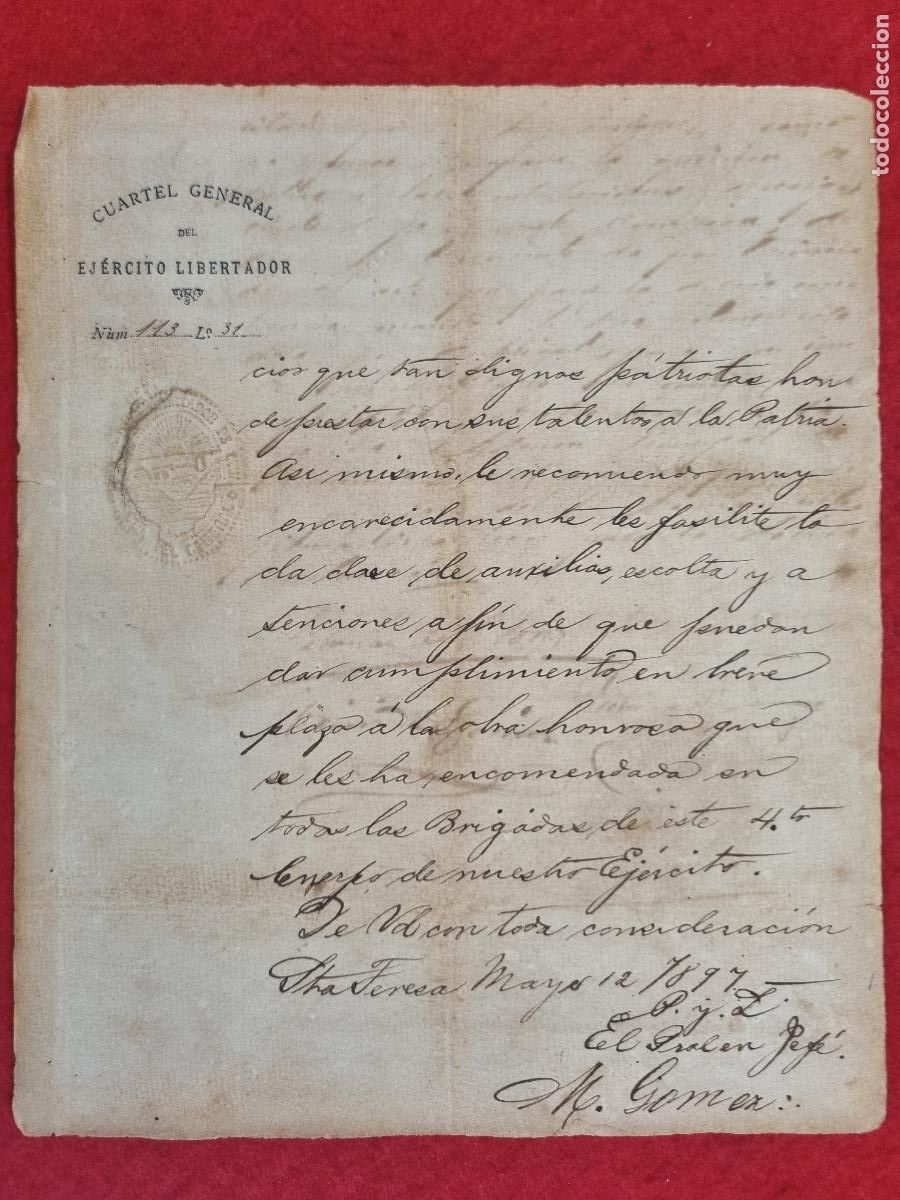 todocoleccion
CUARTEL GENERAL
DEL
EJÉRCITO LIBERTADOR
Núm 113 Lo. 31
cios que tan dignos pátriotas han
de prestar con sus talentos, á la Patria.
Asi mismo, le recomiendo muy
encarecidamente les fasilite to
da clase de auxilios, escolta y a
tenciones a fín de que puedan
dar cumplimiento, en breve
plazo á la obra honrosa que
se les ha encomendada en
todas las Brigadas de este 4.to
Cuerpo de nuestro Ejército.
De Vd con toda consideración
Sta Teresa Mayo 12 1897.
P. y. L.
El Gral en Jefé.
M. Gomez:.